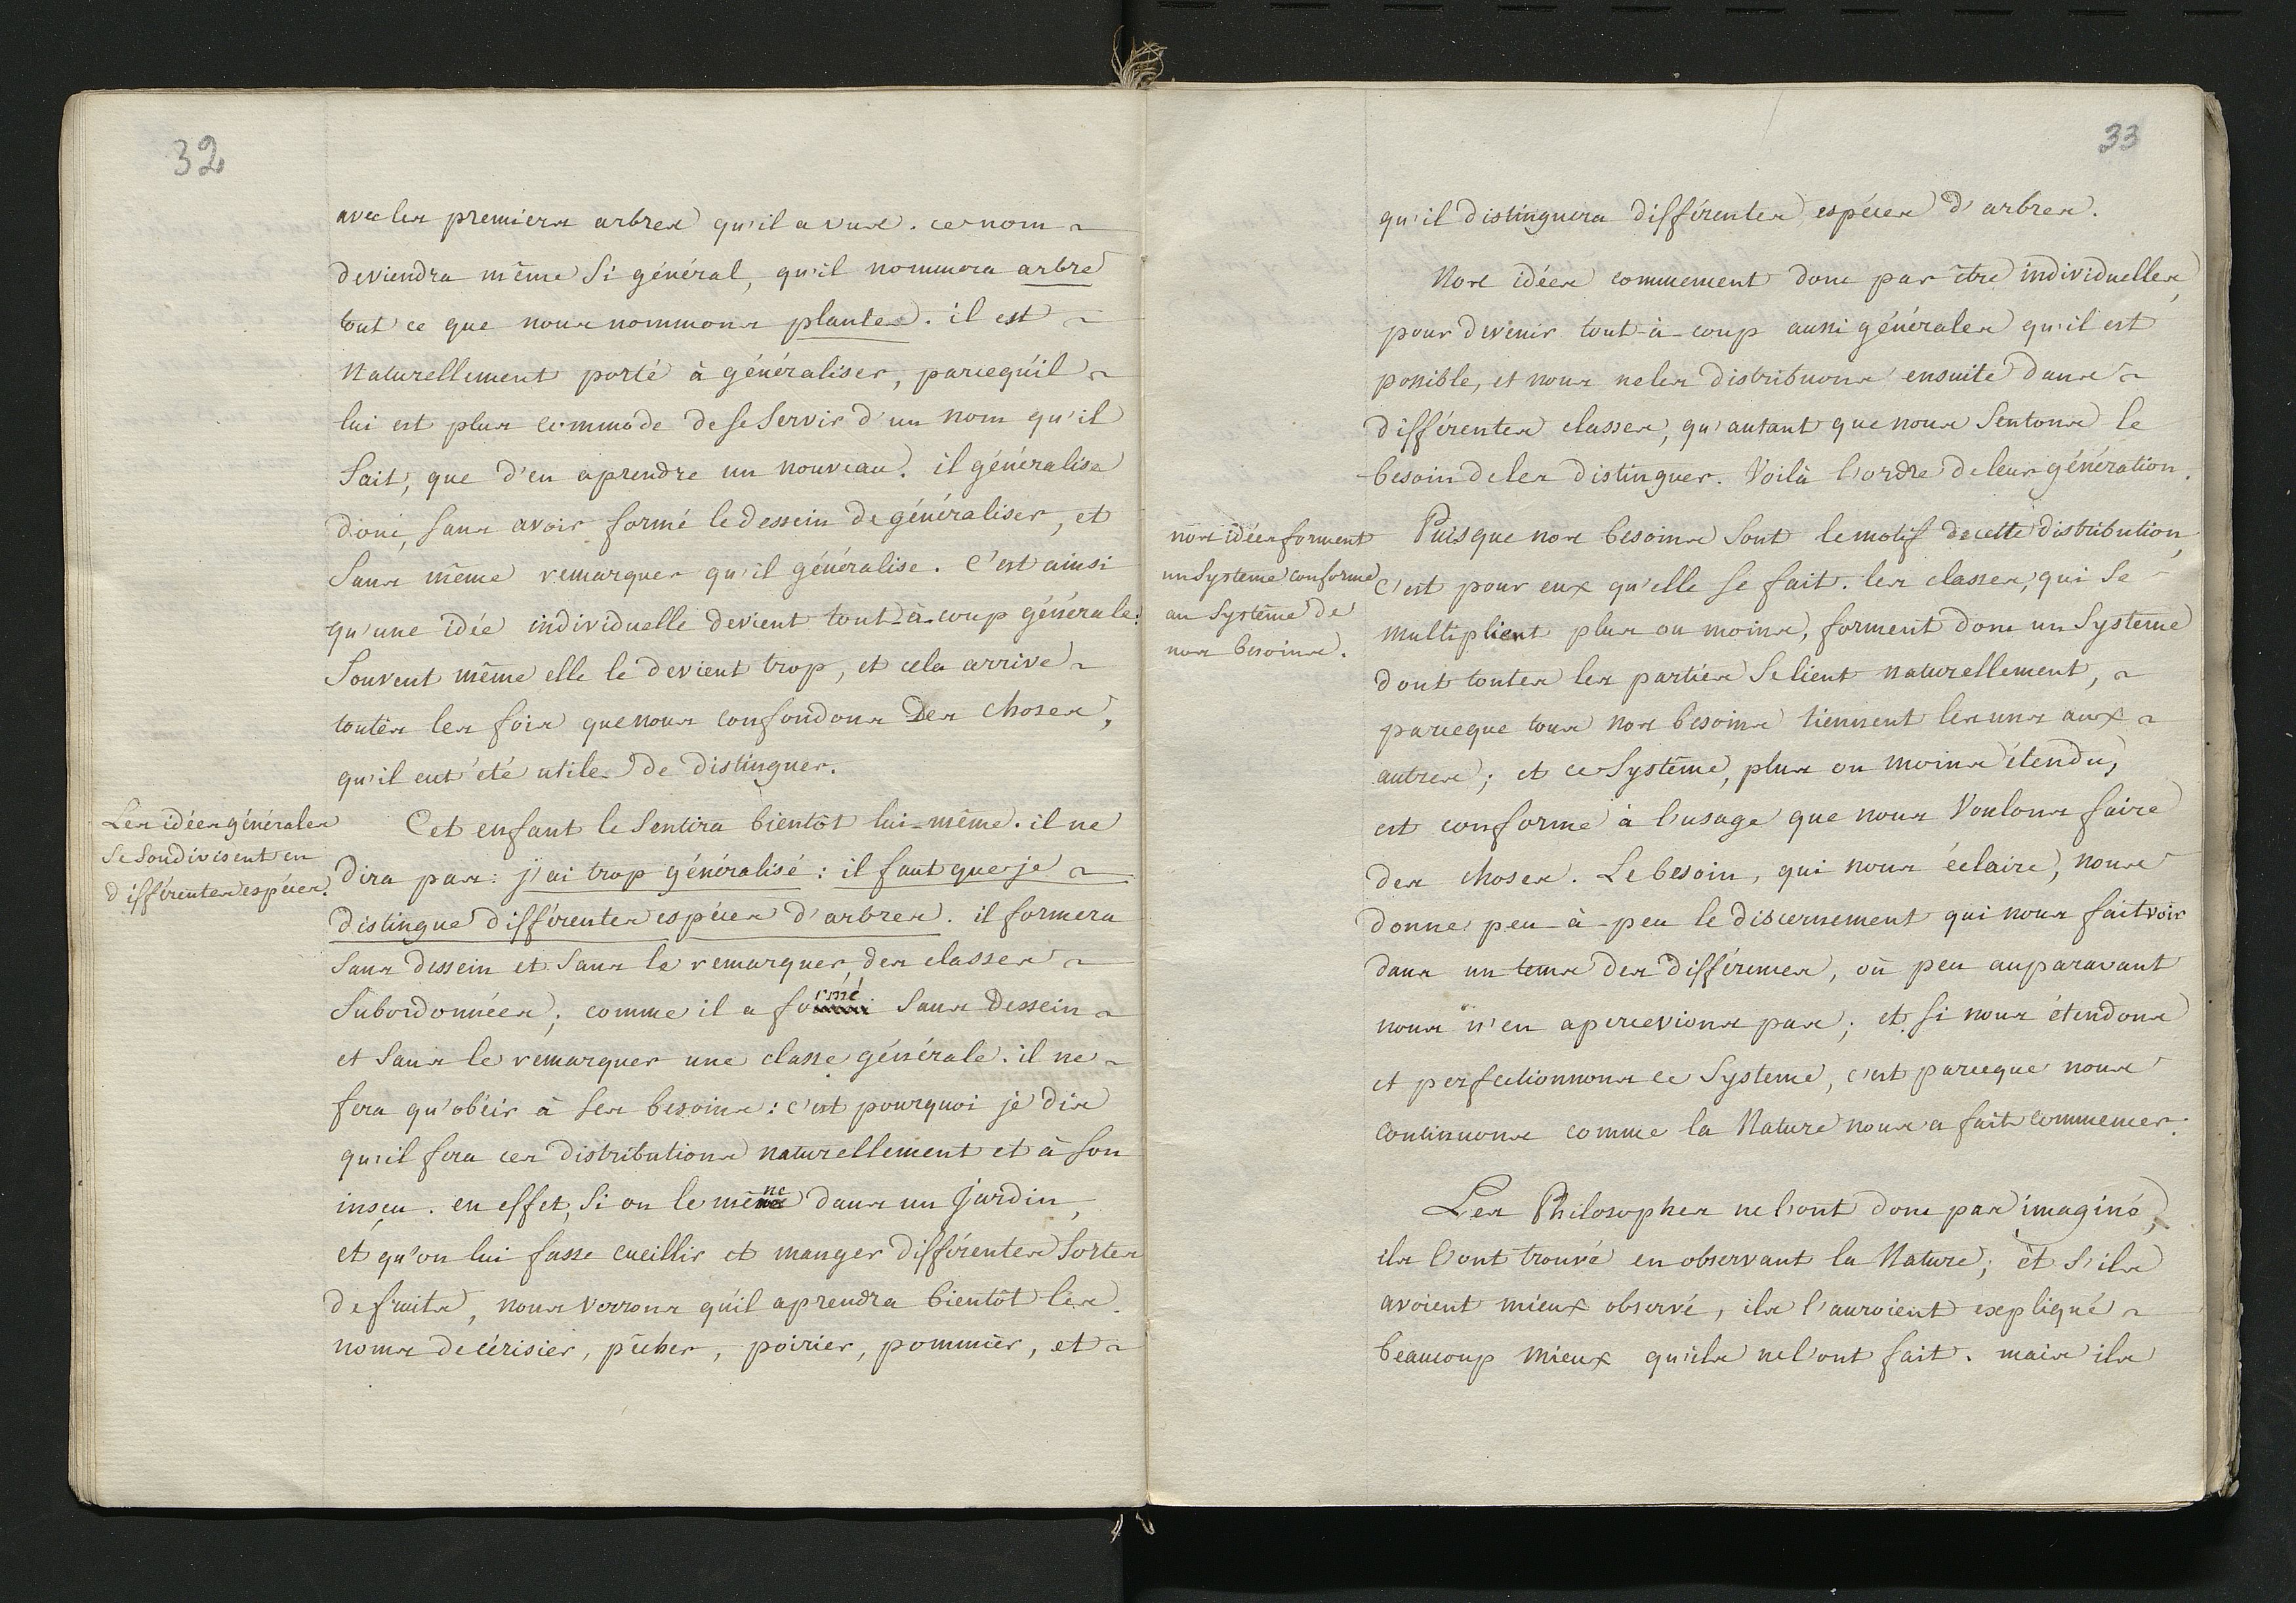 32
avec les premiers arbres qu'il a vus. ce nom
deviendra même si général, qu'il nommera arbre
tout ce que nous nommons plantes. il est
Naturellement porté à généraliser, parcequ'il
lui est plus commode de se servir d'un nom qu'il
sait, que d'en aprendre un nouveau. il généralise
donc, sans avoir formé le dessein de généraliser, et
sans même remarquer qu'il généralise. C'est ainsi
qu'une idée individuelle devient tout-à-coup générale:
souvent même elle le devient trop, et cela arrive
toutes les fois que nous confondons des choses,
qu'il eut été utile de distinguer.
Les idées générales
se soudivisent en
différentes espéces.
Cet enfant le sentira bientôt lui-même. il ne
dira pas: j'ai trop généralisé: il faut que je
distingue différentes espéces d'arbres. il formera
sans dessein et sans le remarquer, des classes
subordonnées; comme il a formé sans dessein
et sans le remarquer une classe générale. il ne
fera qu'obéir à ses besoins: c'est pourquoi je dis
qu'il fera ces distributions naturellement et à son
insçu. en effet, si on le mène dans un jardin,
et qu'on lui fasse cueillir et manger différentes sortes
de fruits, nous verrons qu'il aprendra bientôt les
noms de cérisier, pêcher, poirier, pommier, et
33
qu'il distinguera différentes espéces d'arbres.
Nos idées commencent donc par être individuelles,
pour devenir tout-à-coup aussi générales qu'il est
possible, et nous ne les distribuons ensuite dans
différentes classes, qu'autant que nous sentons le
besoin de les distinguer. Voilà l'ordre de leur génération.
nos idées forment
un systeme conforme
au systême de
nos besoins.
Puisque nos besoins sont le motif de cette distribution,
c'est pour eux qu'elle se fait. les classes, qui se
multiplient plus ou moins, forment donc un systeme
dont toutes les parties se lient naturellement,
parceque tous nos besoins tiennent les uns aux
autres; et ce systême, plus ou moins étendu,
est conforme à l'usage que nous voulons faire
des choses. Le besoin, qui nous éclaire, nous
donne peu-à-peu le discernement qui nous fait voir
dans un tems des différences, où peu auparavant
nous n'en apercevions pas; et si nous étendons
et perfectionnons ce systeme, c'est parceque nous
continuons comme la Nature nous a fait commencer.
Les Philosophes ne l'ont donc pas imaginé,
ils l'ont trouvé en observant la Nature; et s'ils
avoient mieux observé, ils l'auroient expliqué
beaucoup mieux qu'ils ne l'ont fait. mais ils